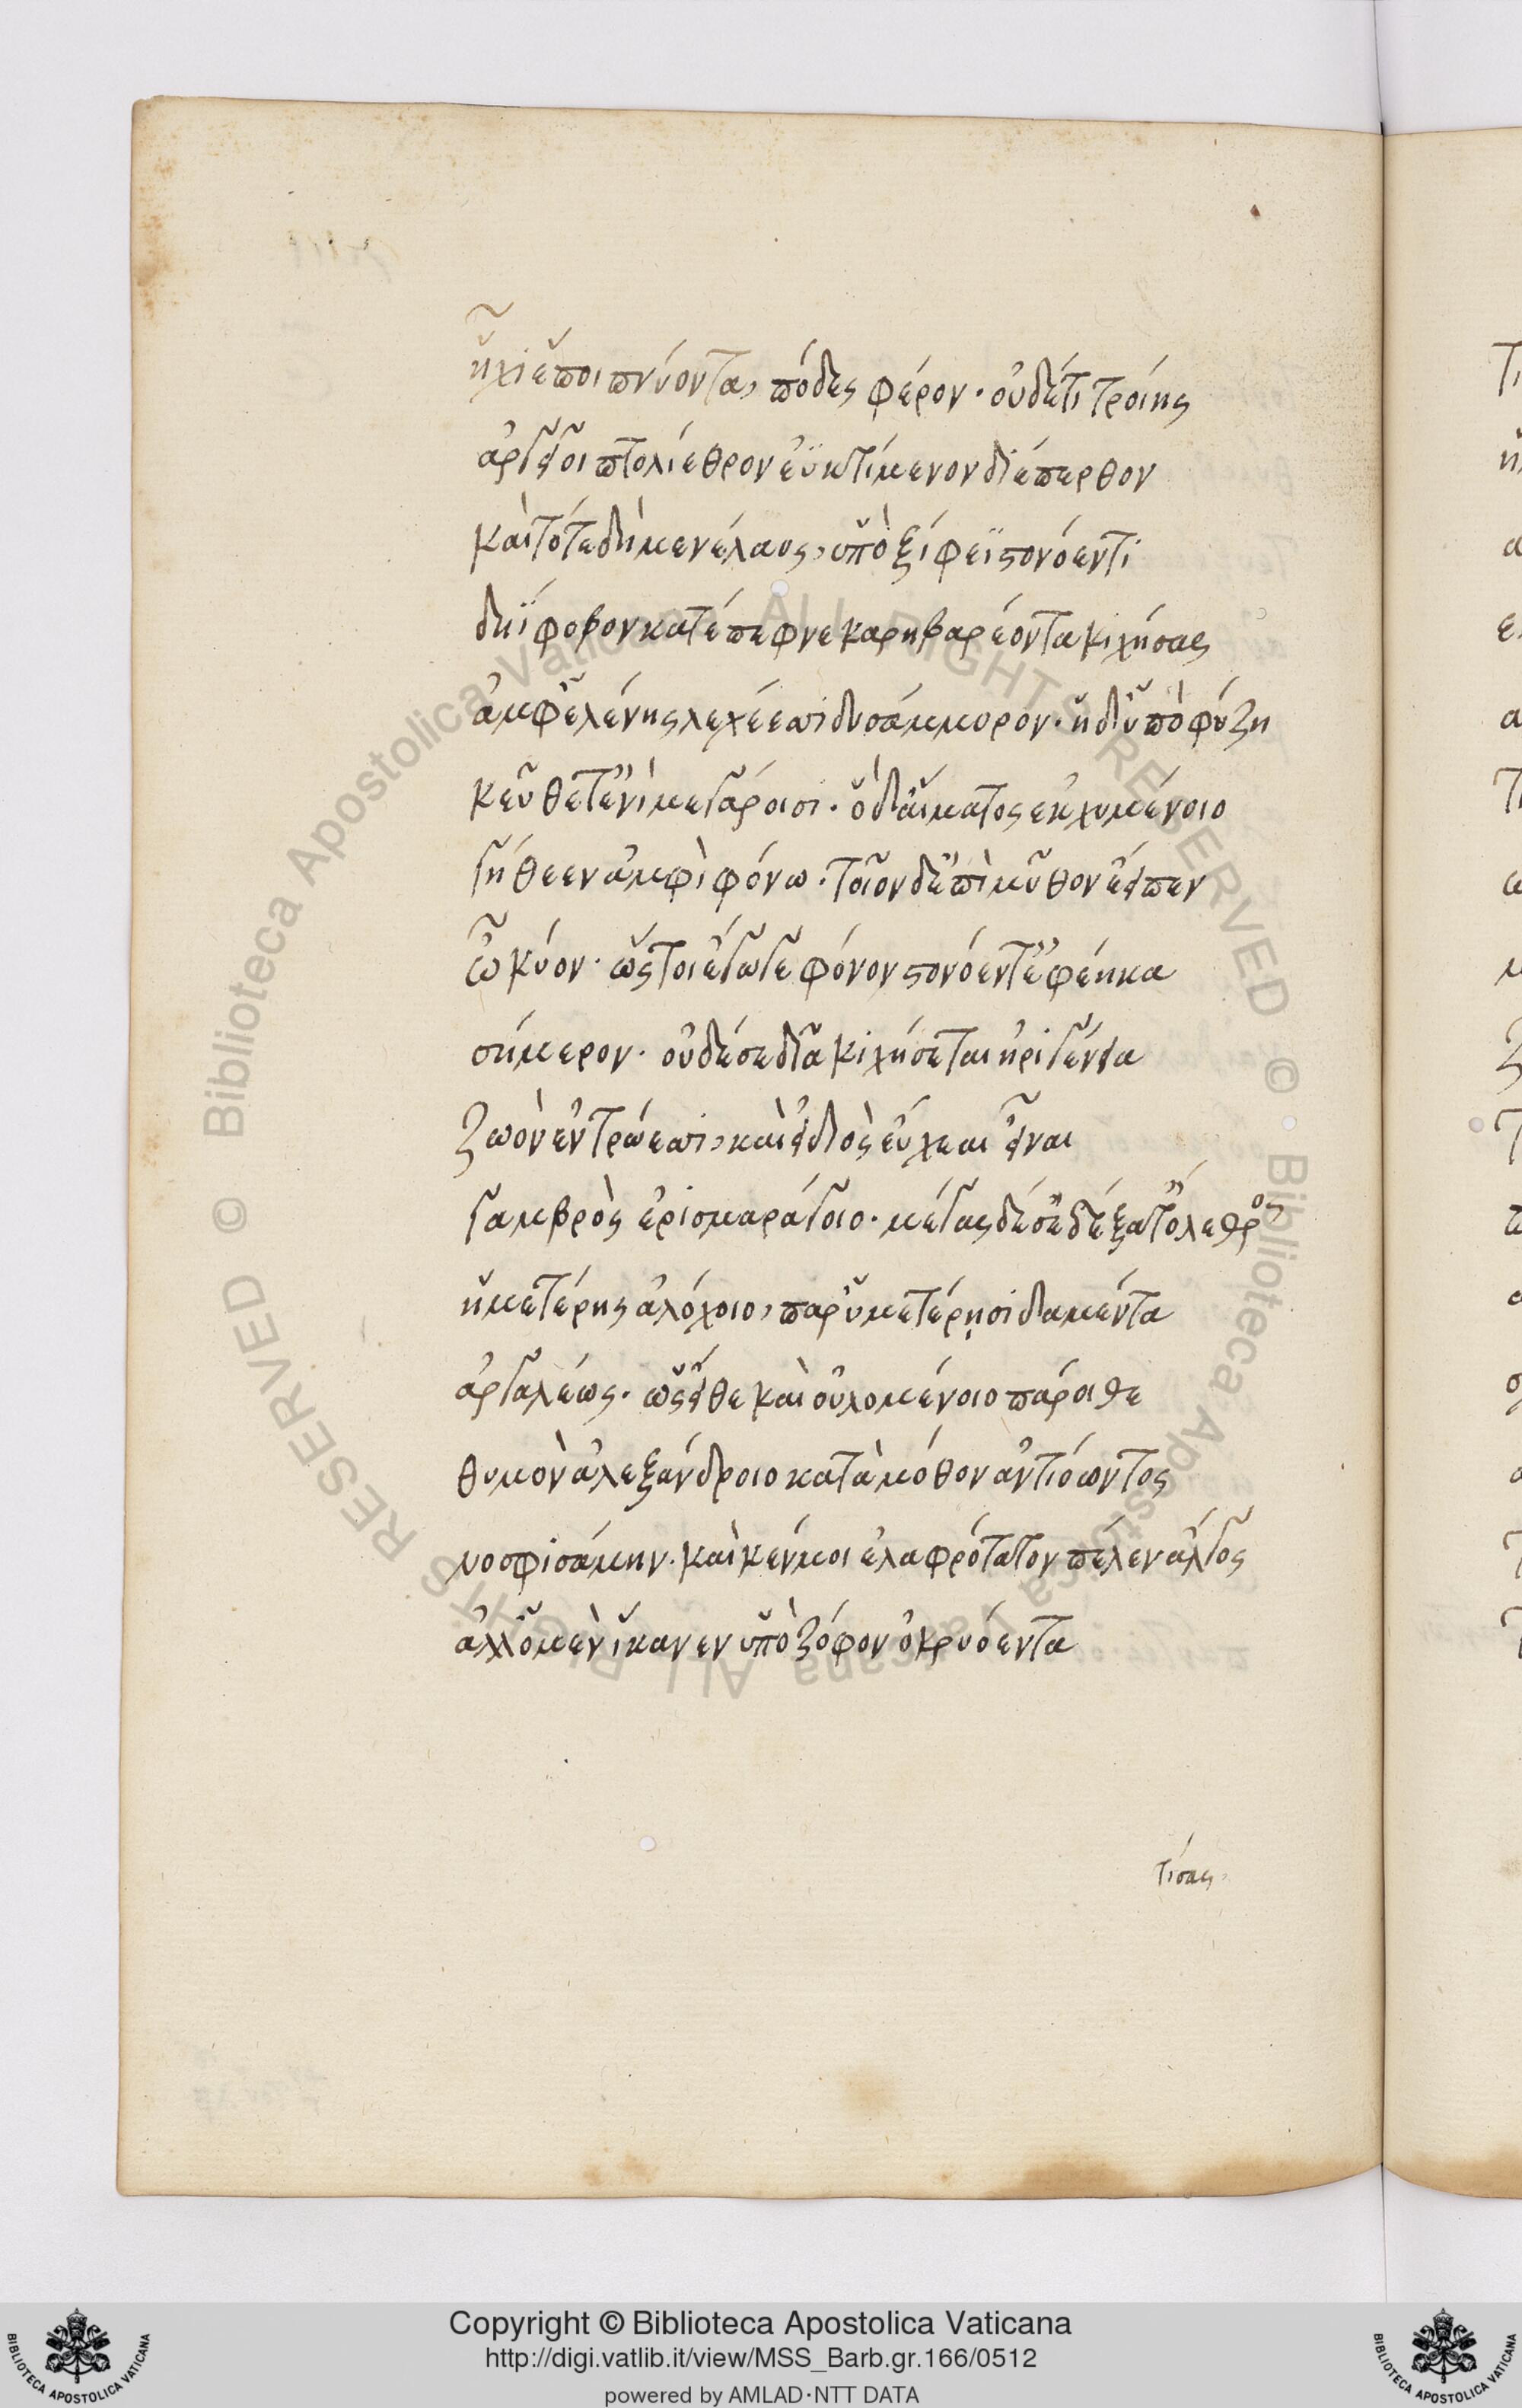 ἧχι ἑ ποιπνύοντα, πόδες φέρον· οὐδέ τι τροίης
ἀργεῖοι πτολίεθρον ἐϋκτίμενον διέπερθον
καὶ τότε δὴ μενέλαος, ὑπὸ ξίφεϊ στονόεντι
δηΐφοβον κατέπεφνε καρηβαρέοντα κιχήσας
ἀμφ' ἑλένης λεχέεσσι δυσάμμορον· ἡ δ' ὑπὸ φύζη
κεῦθετ' ἐνὶ μεγάροισι· ὁ δ' αἵματος ἐκχυμένοιο
γήθεεν ἀμφὶ φόνω· τοῖον δ' ἐπὶ μῦθον ἔειπεν
ὦ κύον· ὥς τοι ἔγωγε φόνον στονόεντ' ἐφέηκα
σήμερον· οὐδέ σε δῖα κιχήσεται ἠριγένεια
ζωὸν ἐν τρώεσσι, καὶ εἰ διὸς εὔχεαι εἶναι
γαμβρὸς ἐρισμαράγοιο· μέγας δέ σε δέξατ' ὄλεθρος
ἡμετέρης ἀλόχοιο, παρ' ὑμετέρῃσι δαμέντα
ἀργαλέως· ὡς εἴθε καὶ οὐλομένοιο πάροιθε
θυμὸν ἀλεξάνδροιο κατὰ μόθον ἀντιόωντος
νοσφισάμην· καὶ κέν μοι ἐλαφρότατον πέλεν ἄλγος
ἀλλ' ὁ μὲν ἵκανεν ὑπὸ ζόφον ὀκρυόεντα
τίσας,
Copyright © Biblioteca Apostolica Vaticana
http://digi.vatlib.it/view/MSS_Barb.gr.166/0512
powered by AMLAD·NTT DATA